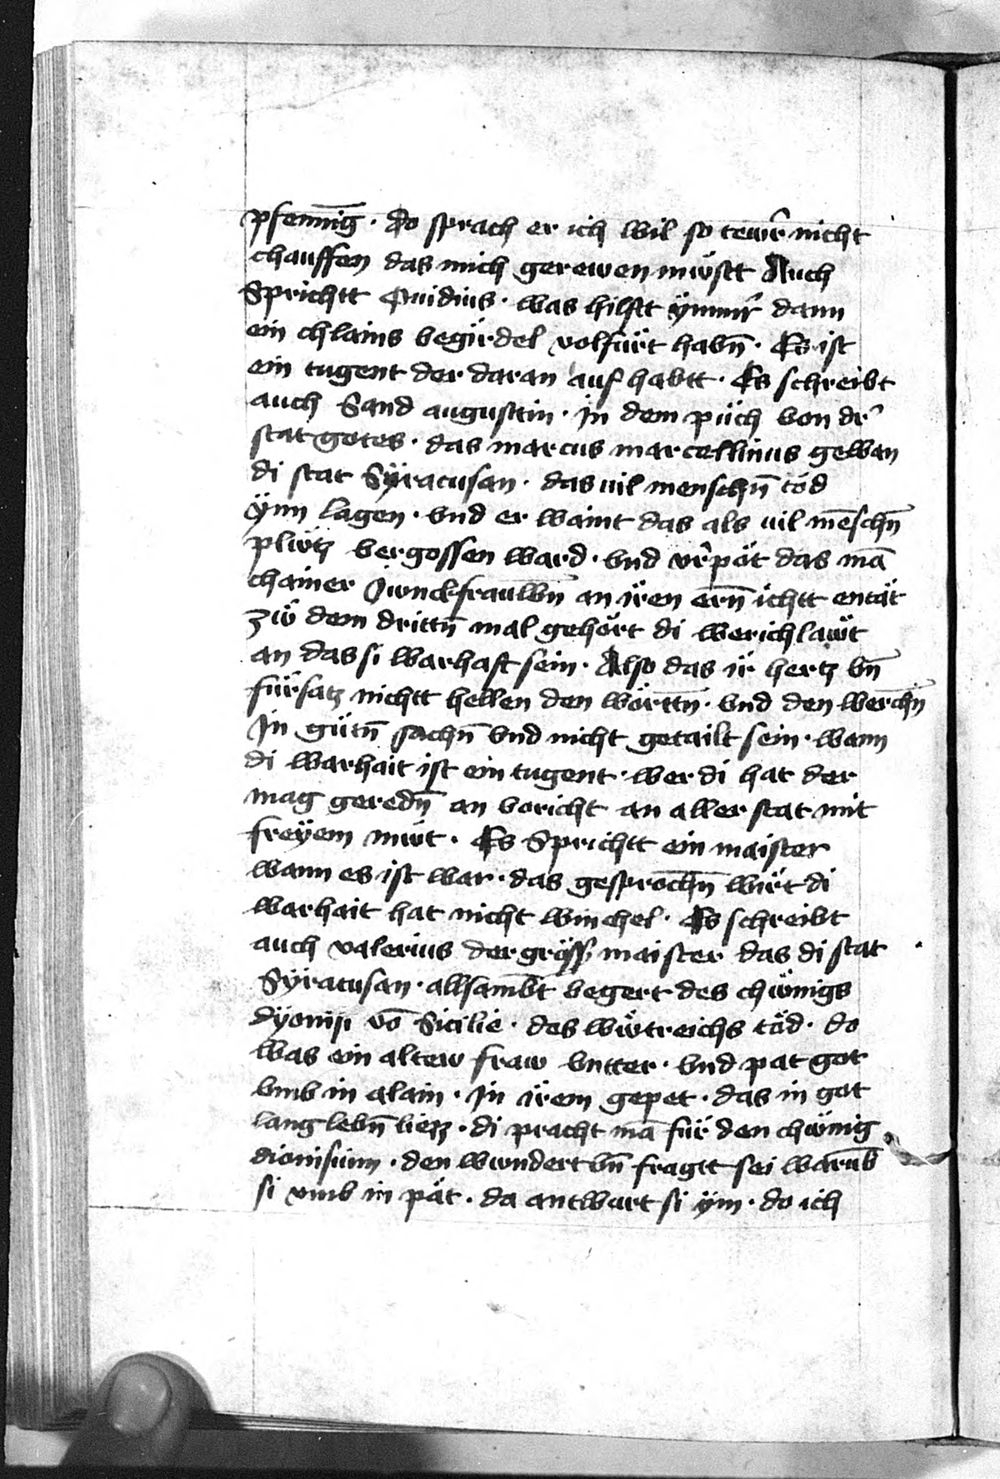 pfenni̅g · do sprach er ich wil so tewr̉ nicht
chauffen das mich gerewen mu̎stt Auch
Sprichtt Ouidius · was hilftt ÿmmr̉ dann
ein chlains begirdel volfürt habn̅ · Es ist
ein tugent der daran auf habtt · Es schreibt
auch Sand augusttin · in dem püch von dr̉
stat gotes · das marcus marcellinus gewan
di stat Sÿracusan · das uil menschn̅ töd
ÿnn lagen · vnd er waint das als uil me̅schn̅
plu̎tz vergossen ward · vnd vr̉pät das ma̅
chainer Junckfrawn̅ an iren ern̅ ichtt entät
zu̎ dem drittn̅ mal gehört di werichlawt
an das si warhaft sein · Also das ir hertz vn̅
fürsatz nichtt hellen den wörttn̅ · vnd den werchn̅
In gütn̅ sachn̅ vnd nicht getailt sein · wann
di warhait ist ein tugent · wer di hat der
mag geredn̅ an voricht an aller stat mit
freÿem mu̎t · Es Sprichtt ein maister
wann es ist war · das gesprochn̅ wirt di
warhait hat nicht winchel · Es schreibt
auch valerius der gröss maister das di stat
Sÿracusan · allsambt begert des chu̎nigs
dyonisij vo̅ Sicilie · des wu̎treichs töd · do
was ein altew fraw vntter · vnd pat got
vmb in alain · in irem gepet · das in got
lang lebn̅ liezz · di pracht ma̅ für den chu̎nig
dionisium · den wundert vn̅ fragtt sei waru̅b
si vmb in pät · da antwart si ÿm · do ich